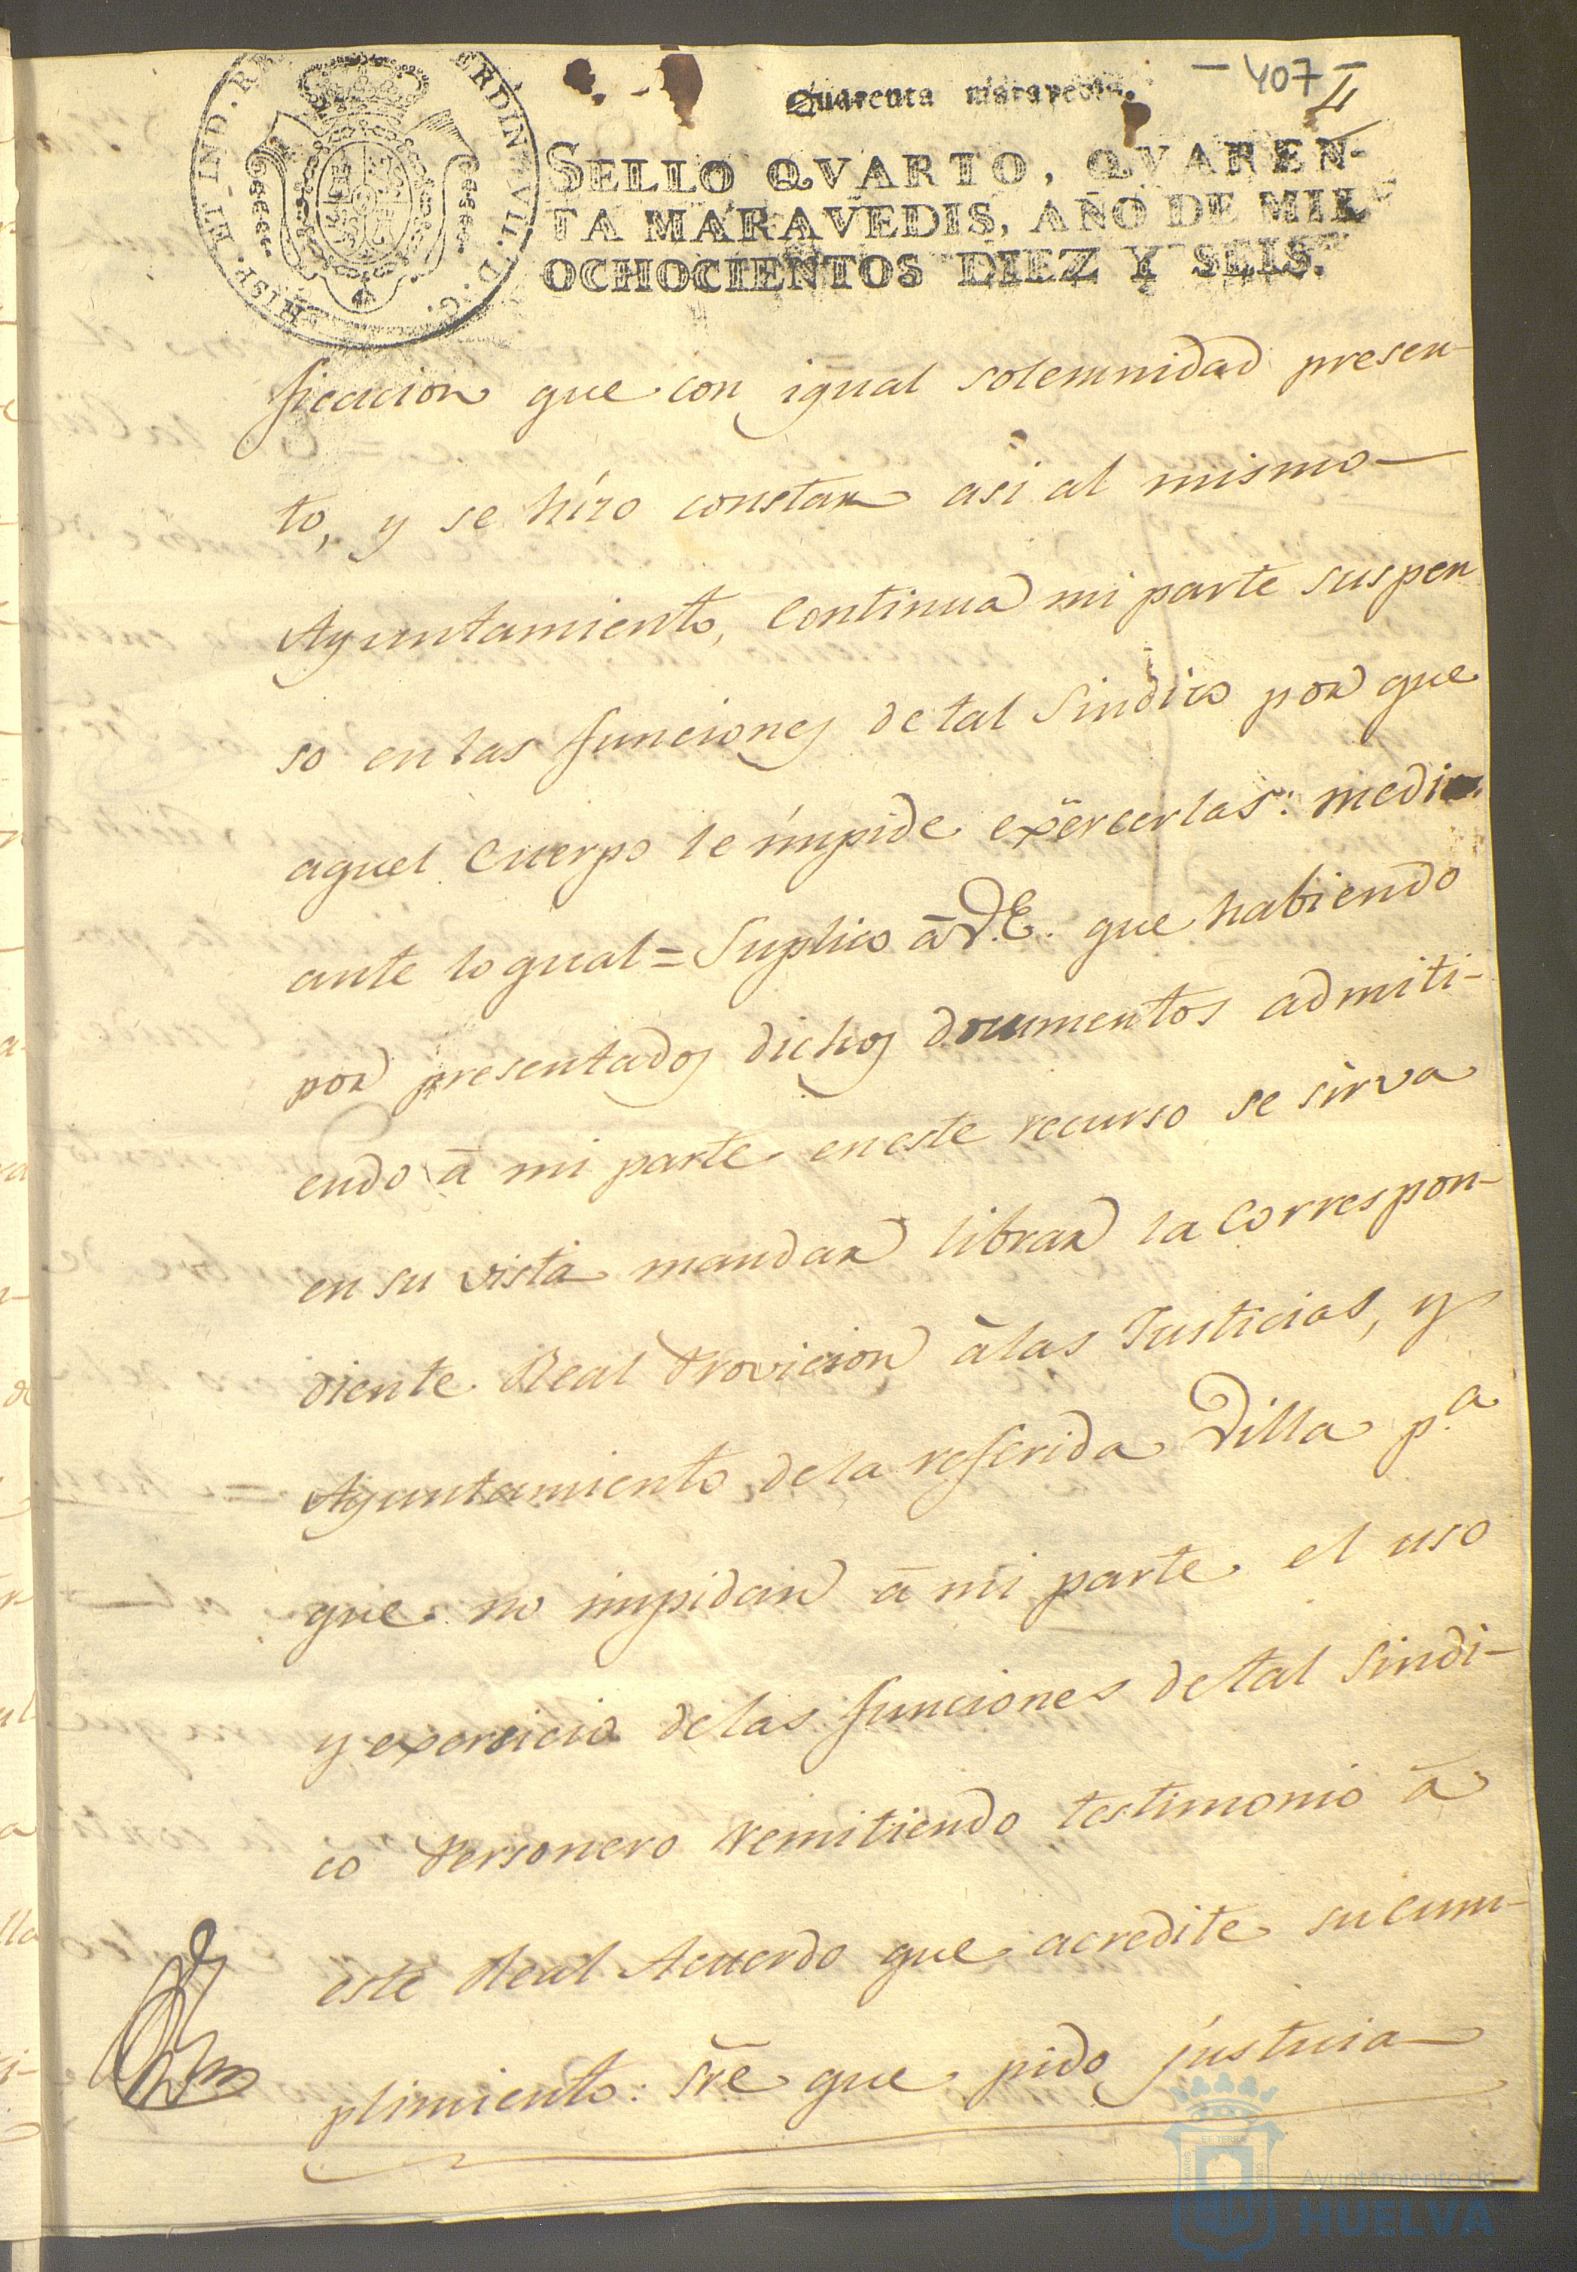 - 407
II
Quarenta maravedis.
SELLO QVARTO, QVAREN-
TA MARAVEDIS, AÑO DE MIL
OCHOCIENTOS DIEZ Y SEIS.
HISP. ET IND. R
ERDIN. VII. D. G.
ficacion que con igual solemnidad presen-
to, y se hizo constar asi al mismo
Ayuntamiento, Continua mi parte suspen
so en las funciones de tal Sindico por que
aquel Cuerpo le impide exercerlas: medi
ante lo qual = Suplico á V.E. que habiendo
por presentados dichos documentos admiti-
endo á mi parte en este recurso se sirva
en su vista mandar librar la Correspon-
diente Real Provicion á las Justicias, y
Ayuntamiento de la referida Villa p.a
que no impidan á mi parte el uso
y exercicio de las funciones de tal Sindi-
co Personero remitiendo testimonio á
este Real Acuerdo que acredite su cum-
plimiento: sre que pido justicia
Ayuntamiento de
HUELVA